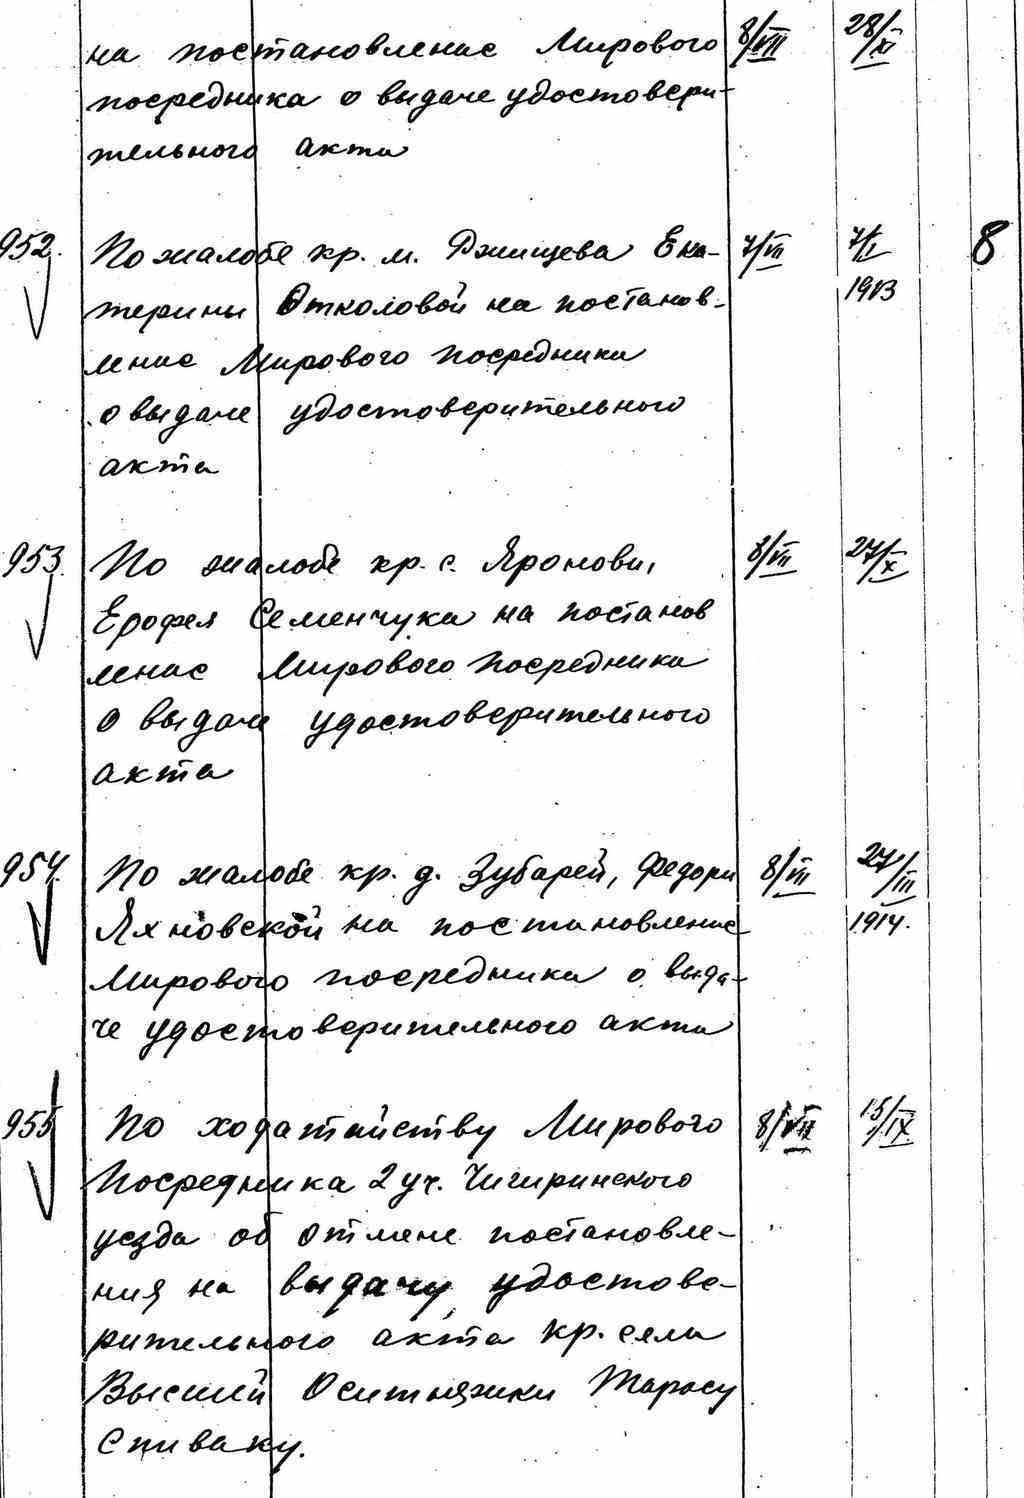 на постановление Мирового 8/VII 28/XI
посредника о выдаче удостовери-
тельного акта
952. По жалобе кр. м. Ржищева Ека- 7/VII 7/I 8
терины Откаловой на постанов- 1913
ление Мирового посредника
о выдаче удостоверительного
акта
953. По жалобе кр. с. Яроновки, 8/VII 27/X
Ерофея Семенчука на постанов
ление Мирового посредника
о выдаче удостоверительного
акта
954. По жалобе кр. д. Зубарей, Федоры 8/VII 27/III
Яхновской на постановление 1914.
Мирового посредника о выда-
че удостоверительного акта
955 По ходатайству Мирового 8/VII 15/IX
Посредника 2 уч. Чигиринского
уезда об отмене постановле-
ния на выдачу удостове-
рительного акта кр. села
Высший Оситняжки Тарасу
Спиваку.